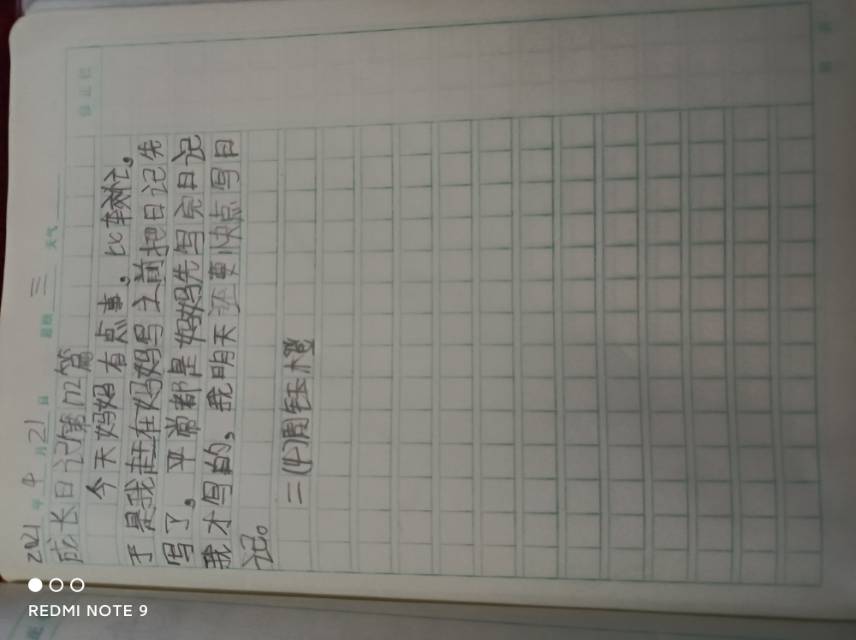 2021年4月21日 星期三 天气
成长日记第172篇
今天妈妈有点事,比较忙。
于是我赶在妈妈写之前把日记先
写了。平常都是妈妈先写完日记
我才写的。我明天还要快点写日
记。
二(4)周钰
REDMI NOTE 9